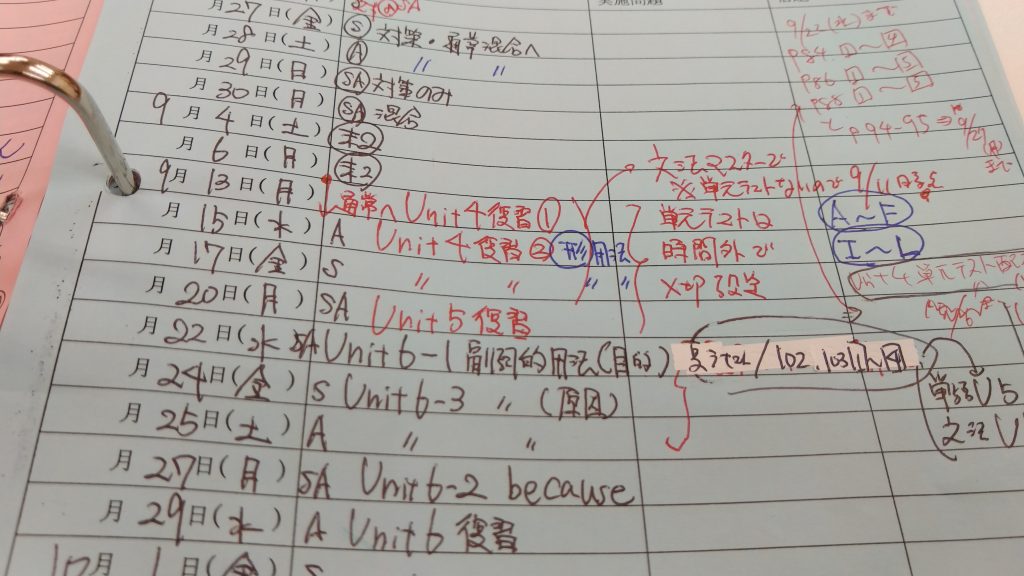 実施問題
月27日(金) Ⓢ 対策・通常混合へ
9/22(水)まで
月28日(土) Ⓐ 〃 〃
P84 1〜4
月29日(日) SA 対策のみ
P86 1〜5
月30日(月) SA 混合
P88 1〜5
9月4日(土) 末2
P94-95 ⇒ 9/29
月6日(月) 末2
文法マスターで
9月13日(月) 通常へ Unit4復習①
※単元テストないので 9/11
月15日(水) A Unit4復習② 形用法
単元テストは
A〜F
月17日(金) S 〃 〃 〃 〃
時間外で
I〜L
月20日(月) SA Unit5復習
×切設定
Unit4 単元テスト
月22日(水) SA Unit6-1 副詞的用法(目的)
/102,103
月24日(金) S Unit6-3 〃 (原因)
単語U5
月25日(土) A 〃 〃
文法U
月27日(月) SA Unit6-2 because
月29日(水) A Unit6 復習
10月1日(金) S